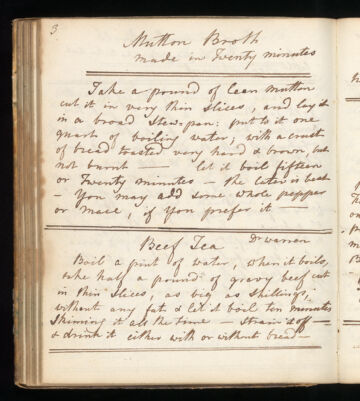 3
Mutton Broth
made in Twenty minutes
Take a pound of lean mutton
cut it in very thin slices, and lay it
in a broad stew-pan: put to it one
quart of boiling water, with a crust
of bread toasted very hard & brown, but
not burnt — let it boil fifteen
or Twenty minutes — the later is best
— You may add some whole pepper
or mace, if you prefer it —
Beef Tea Dr Warren
Boil a pint of water, when it boils,
take half a pound of gravy beef cut
in thin slices, as big as shillings,
without any fat & let it boil ten minutes
skimming it all the time — Strain it off —
& drink it either with or without bread —